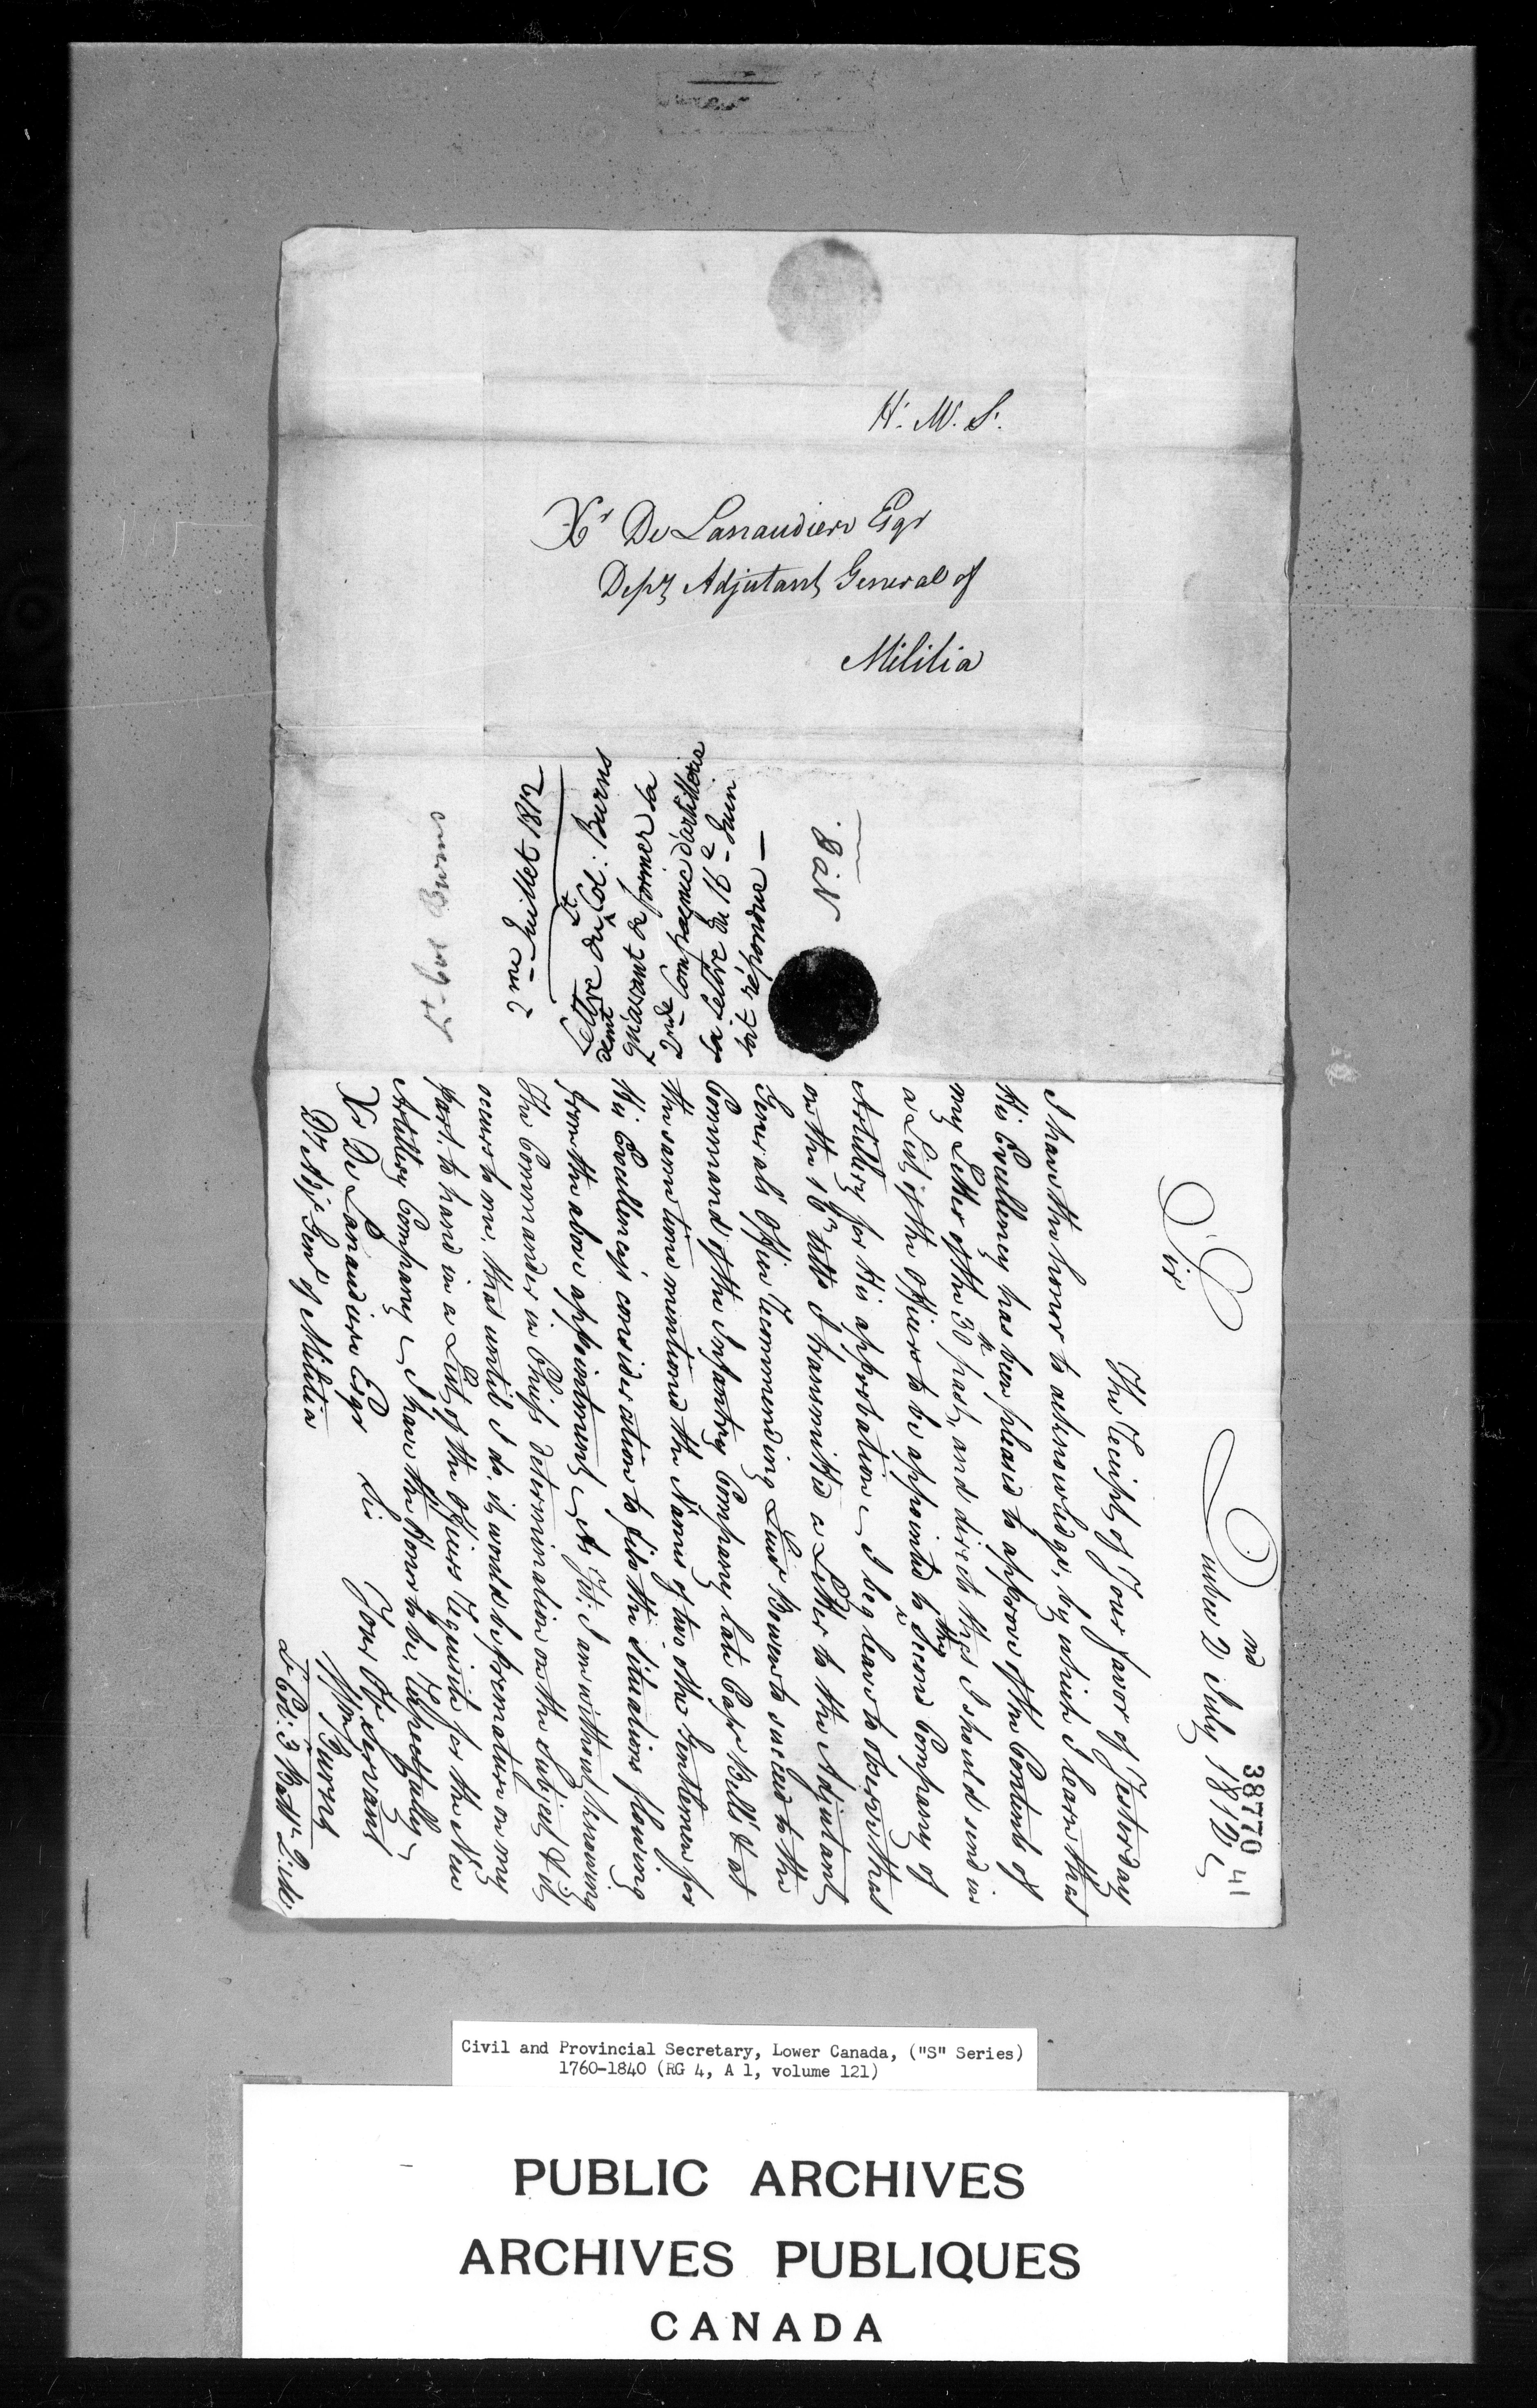 H. M. S.
Xr De Lanaudiere Esqr
Depy Adjutant General of
Militia
Lt Col Burns
2me Juillet 1812
Lettre du Lt Col: Burns
demt
qu'avant de former la
2nde Compagnie d'artillerie
sa Lettre du 16e Juin
soit répondue —
No 8.
38770
41
Quebec 2nd July 1812
Sir
The Receipt of Your favor of Yesterday
I have the honor to acknowledge, by which I learn that
His Excellency has been pleased to approve of the Contents of
my Letter of the 30th past, and direct that I should send in
a List of the Officers to be appointed to the second Company of
Artillery for His approbation — I beg leave to observe that
on the 16th Ulto I transmitted a Letter to the Adjutant
General's Office Recommending Lieut Bowen to succeed to the
Command of the Infantry Company late Capt Bell's & at
the same time mentioned the Names of two other Gentlemen for
His Excellency's consideration to fill the situations flowing
from the above appointment — As Yet I am without knowing
The Commander in Chiefs determination on the subject, & it
occurs to me, that until I do, it would be premature on my
part, to hand in a List of the Officers Requisite for the New
Artillery Company — I have the Honor to be, Respectfully
Sir
Your Ob Servant
Wm Burns
Lt Col: 3 Battn Q: Mil:
Xr De Lanaudiere Esqr
Dy Adjt Genl of Militia
Civil and Provincial Secretary, Lower Canada, ("S" Series)
1760-1840 (RG 4, A 1, volume 121)
PUBLIC ARCHIVES
ARCHIVES PUBLIQUES
CANADA